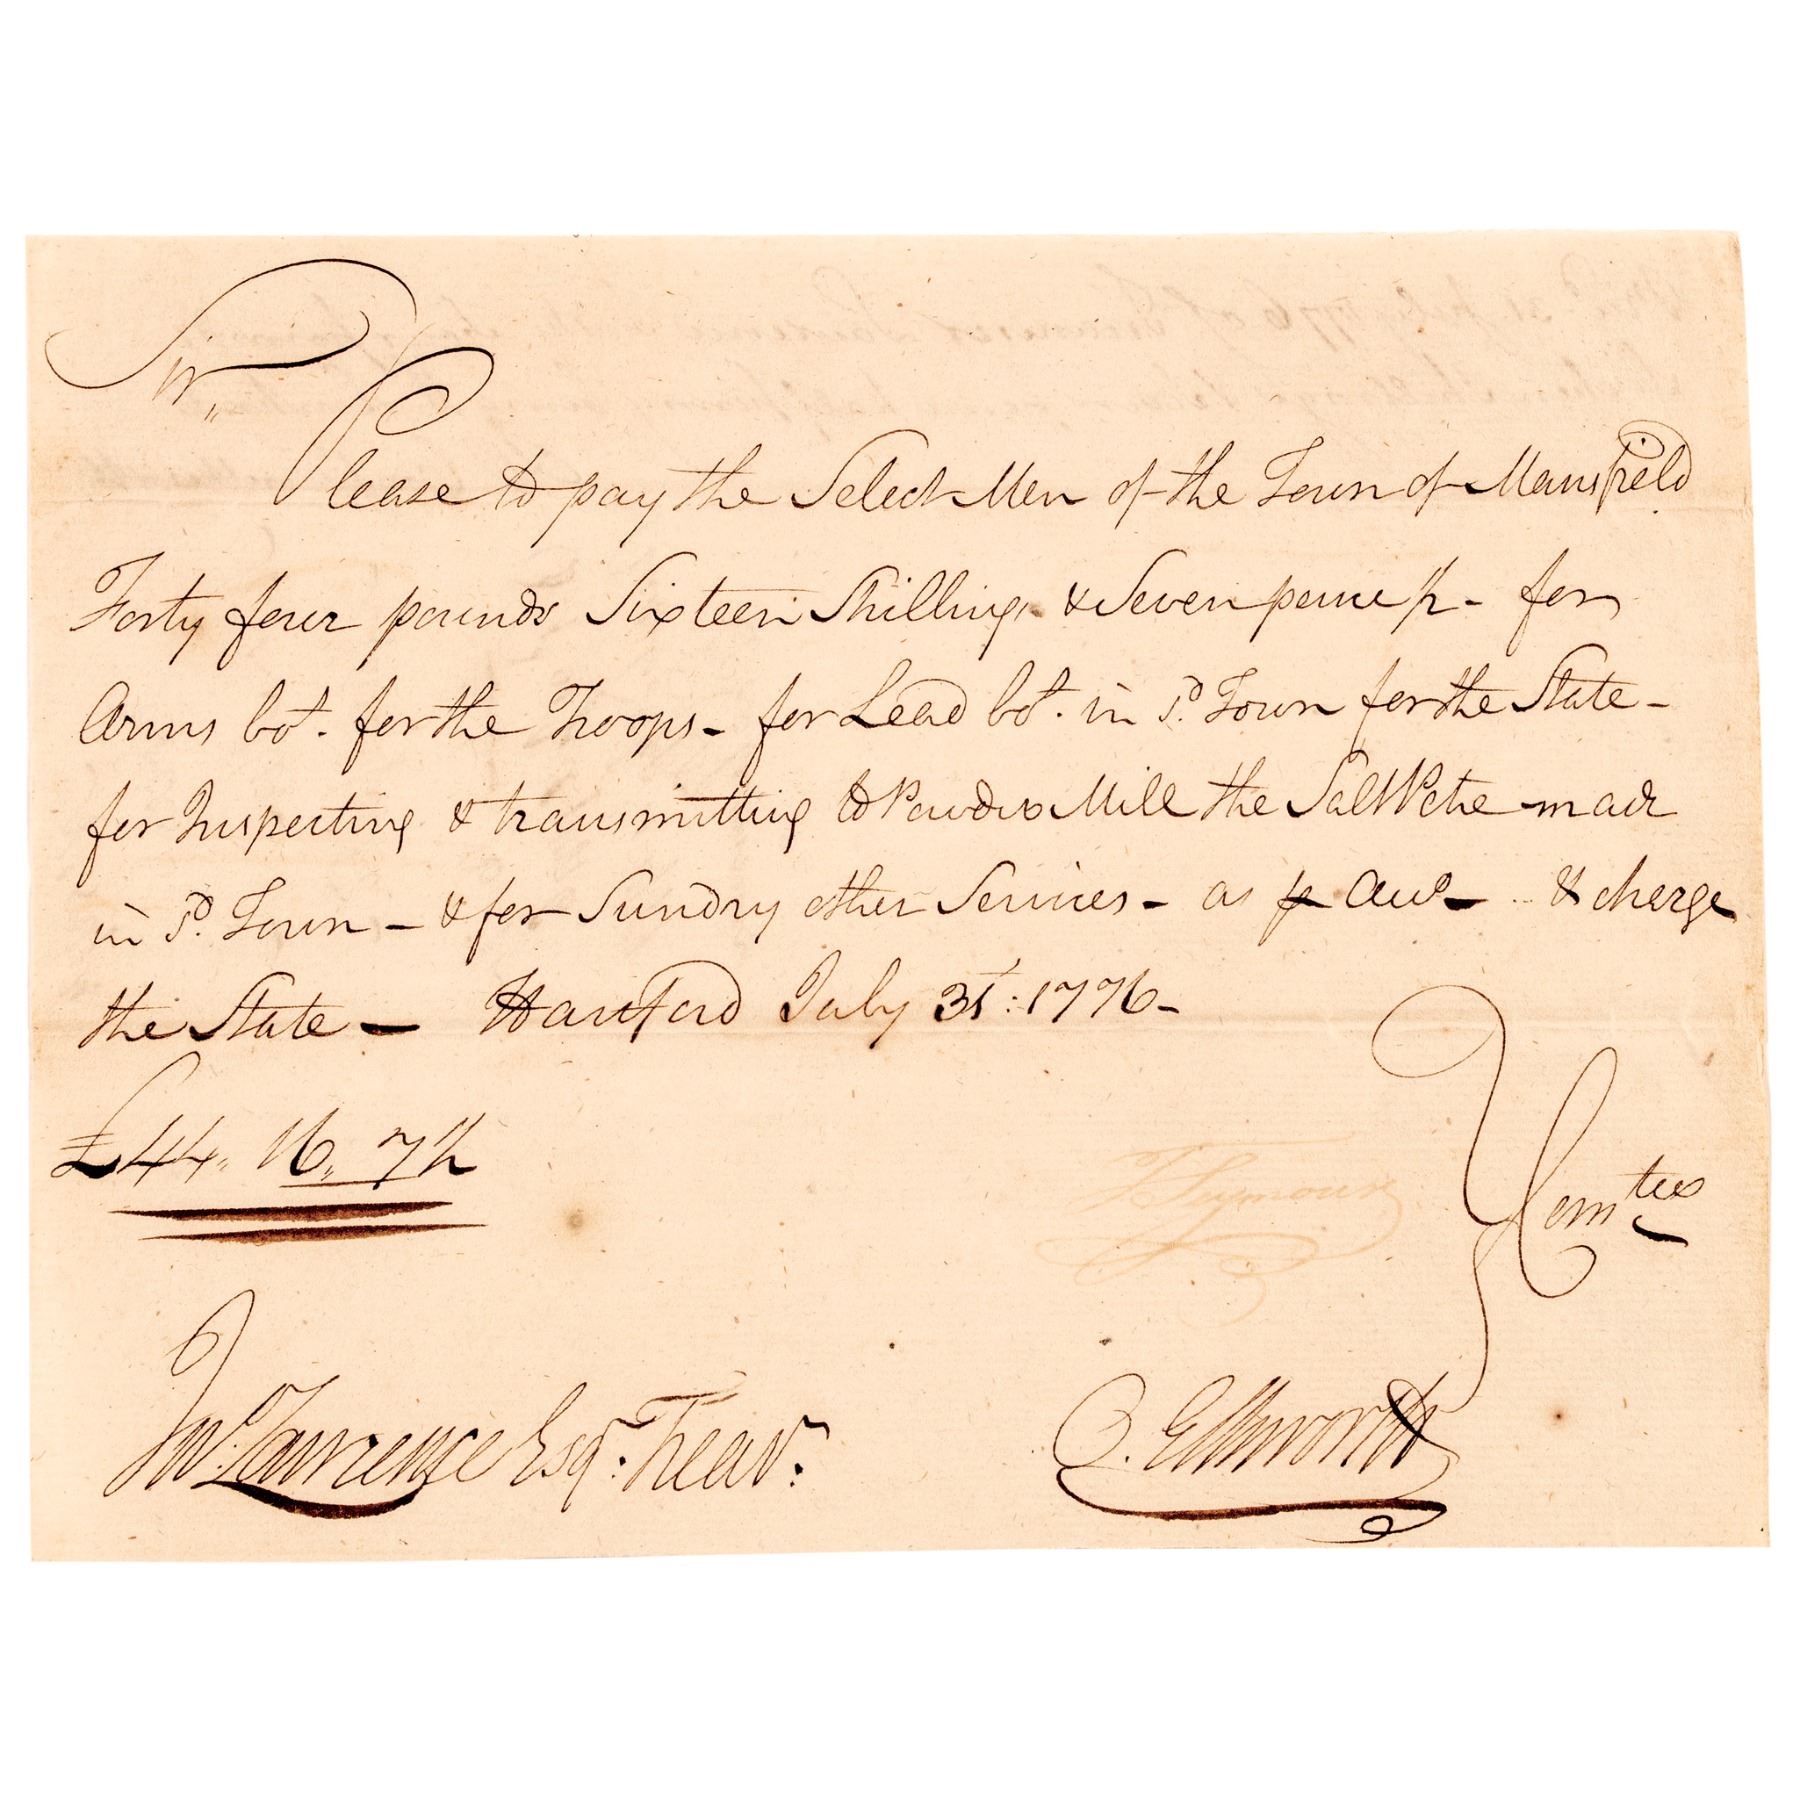 Sir,,
Please to pay the Select Men of the Town of Mansfield
Forty four pounds Sixteen Shillings & Seven pence ½ - for
Arms bot. for the Troops - for Lead bot. in sd. Town for the State -
for Inspecting & transmitting to Powder Mill the Salt Petre made
in sd. Town - & for Sundry other Services - as pr Acco - & charge
the State - Hartford July 31st: 1776 -
£44,, 16,, 7½
T Seymour
Comtee
Jno. Lawrence Esqr. Trear.
O. Ellsworth